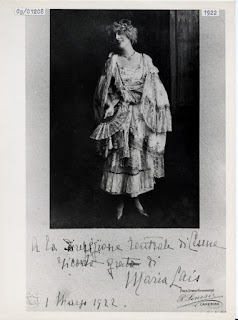 Op/01208 1922
A la Direzione teatrale di Cesena
ricordo grato di
Maria Lais
1 Marzo 1922.